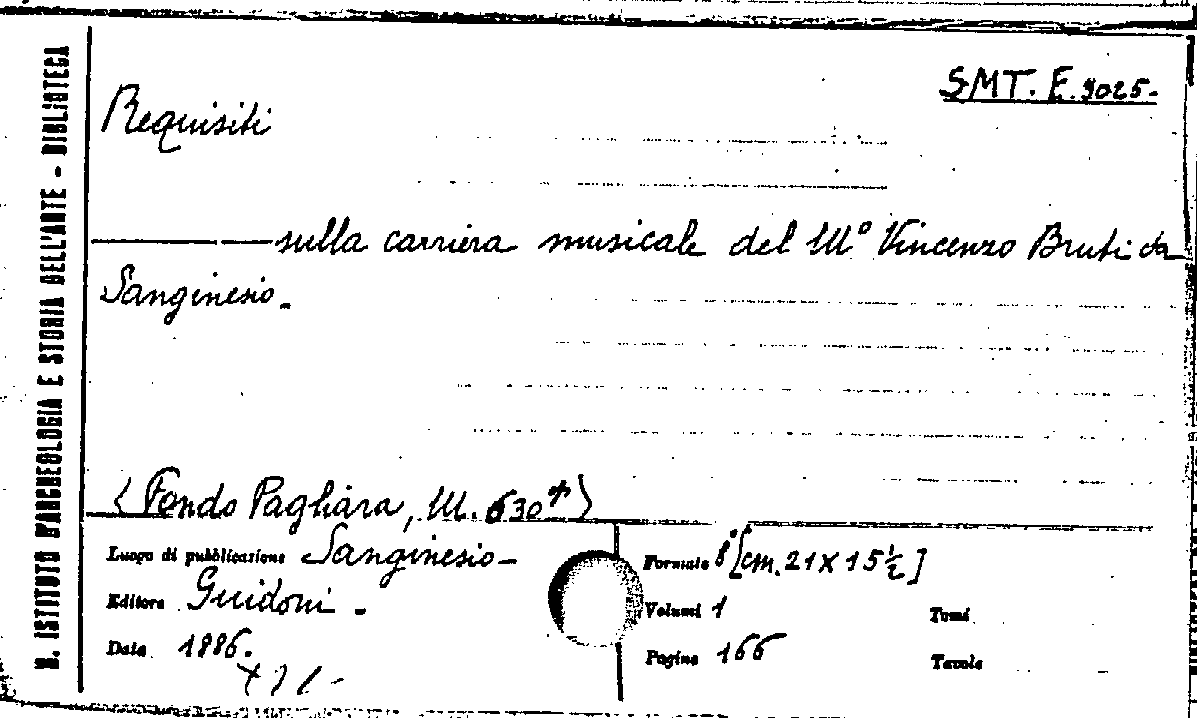 SMT. E. 9025.
Requisiti
sulla carriera musicale del Mº Vincenzo Bruti da
Sanginesio.
(Fondo Pagliara, M. 630*)
Luogo di pubblicazione Sanginesio -
Formato 8° [cm. 21 x 15 ½]
Editore Guidoni.
Volumi 1
Tomi
Data 1886.
Pagine 166
Tavole
R. ISTITUTO D'ARCHEOLOGIA E STORIA DELL'ARTE - BIBLIOTECA